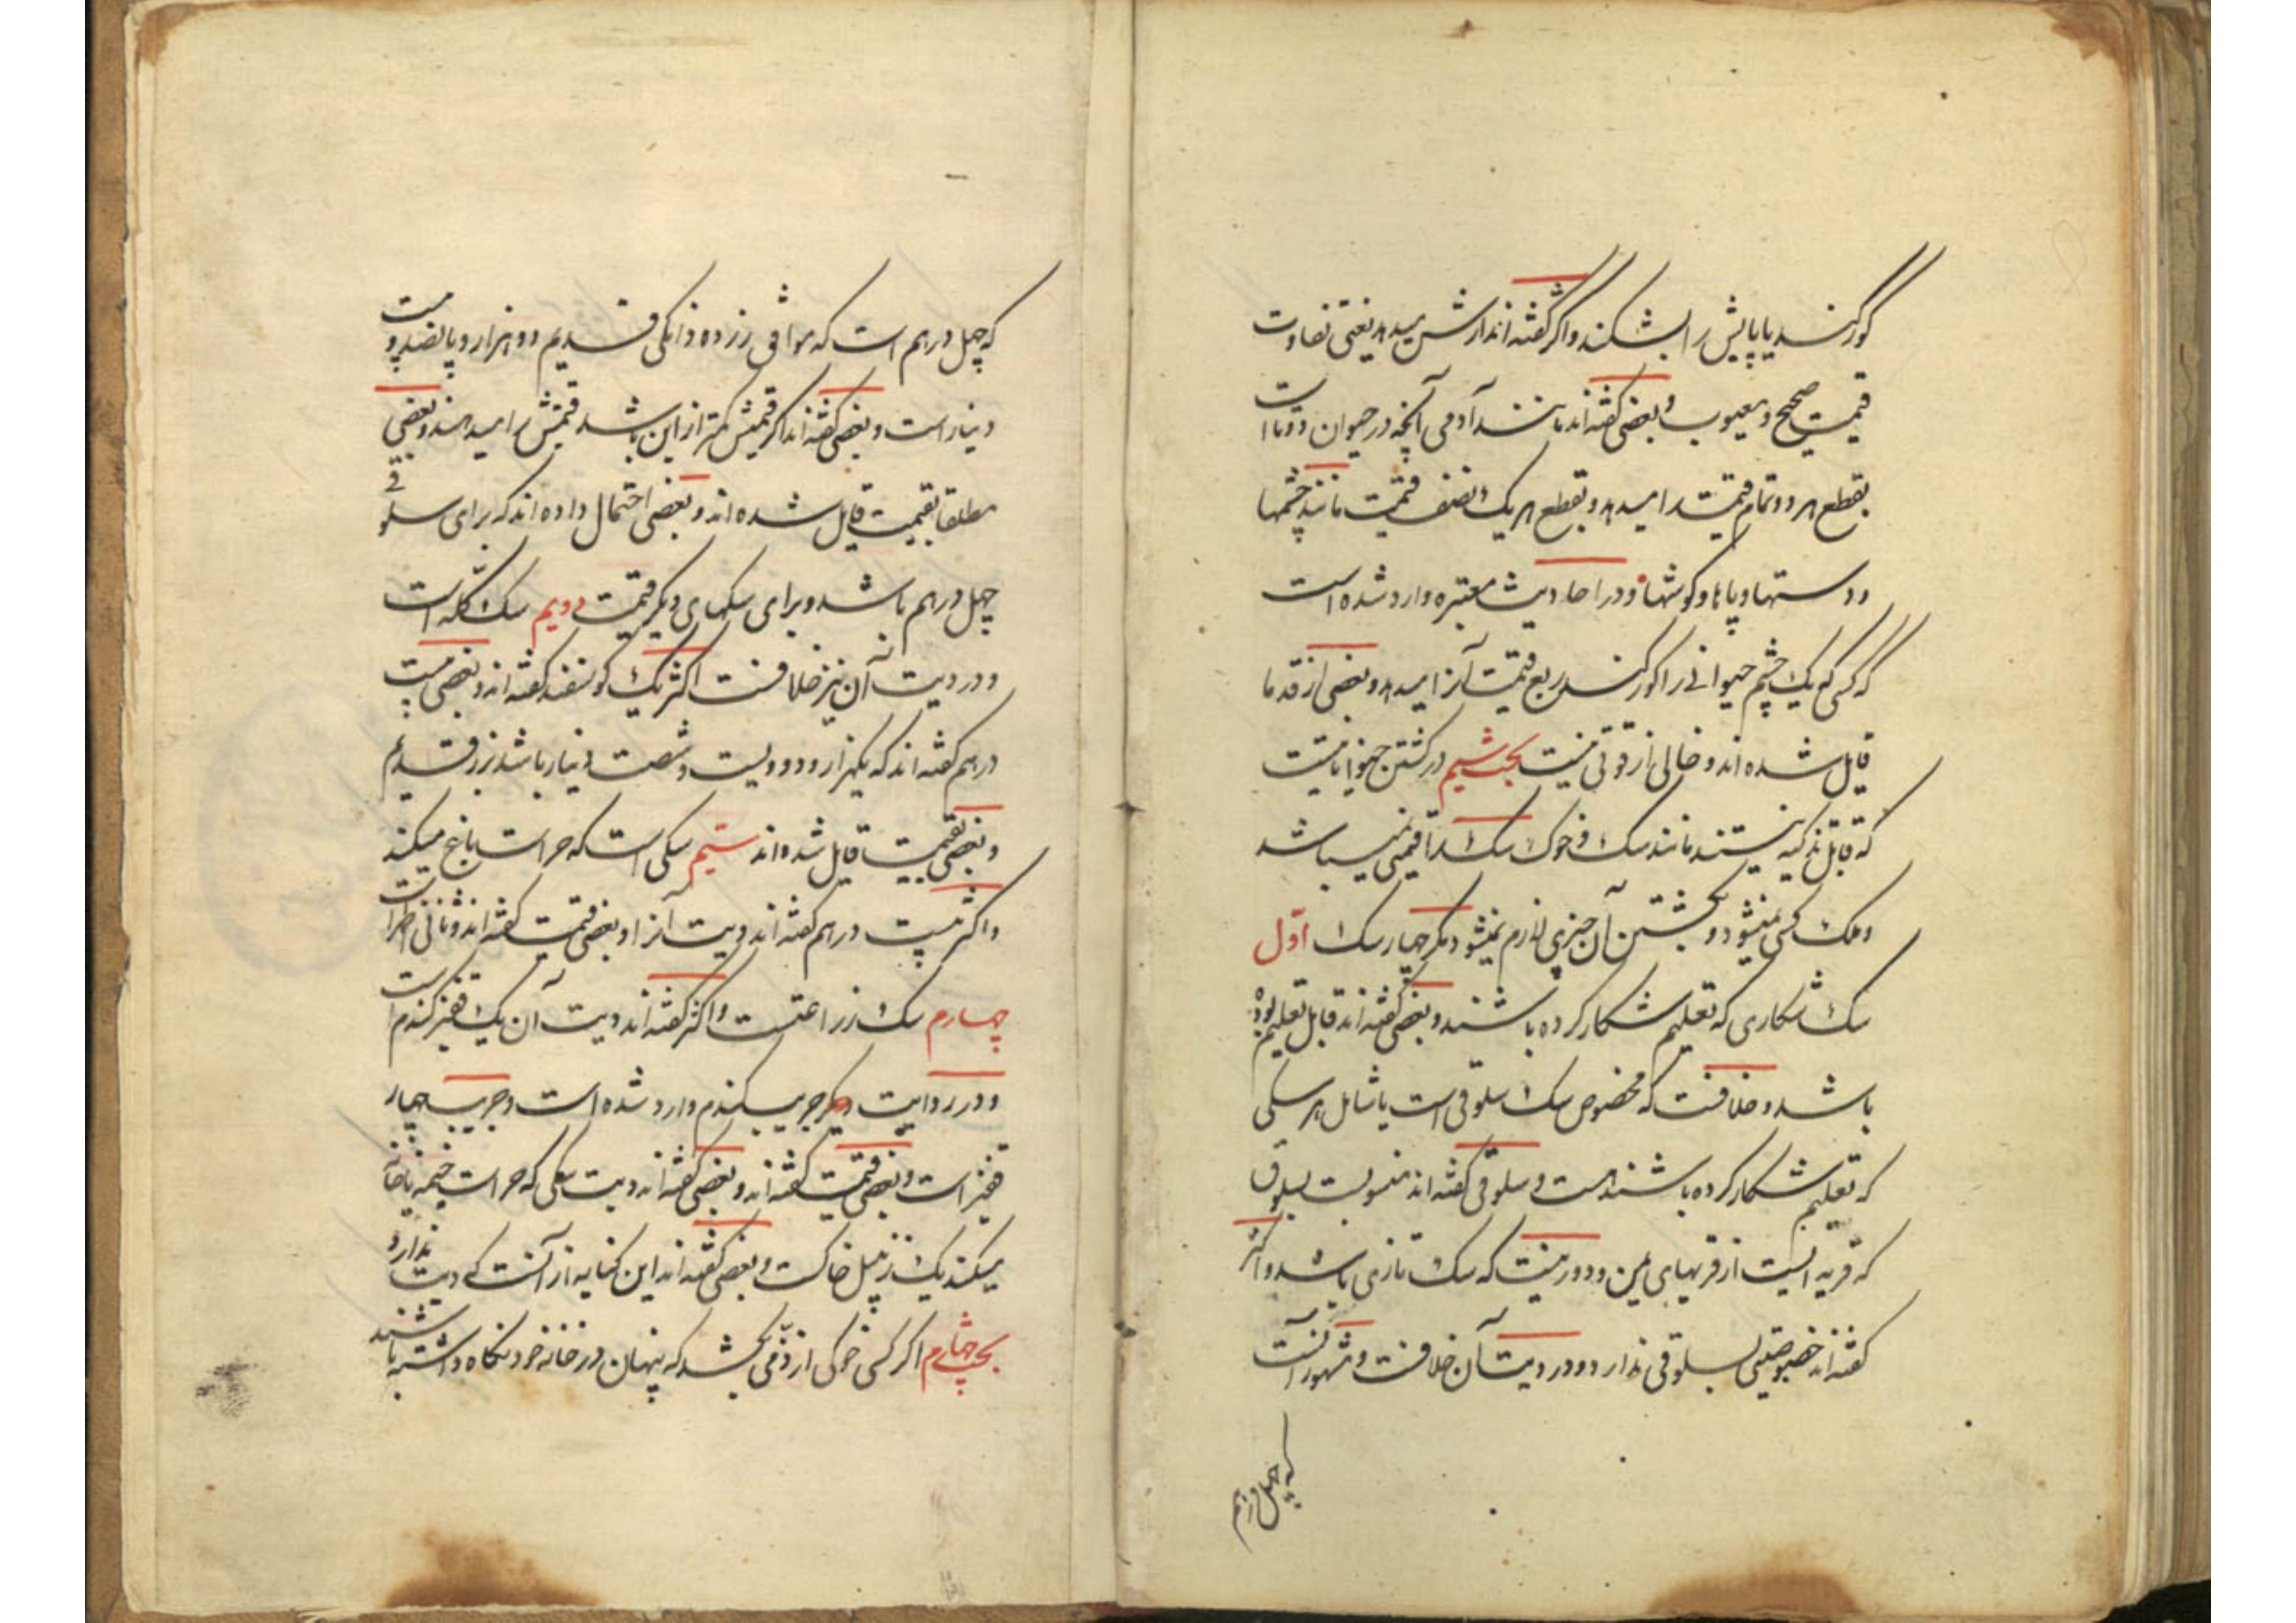 کور کند یا پایش را بشکند و اکثر گفته‌اند ارش میدهد یعنی تفاوت
قیمت صحیح و معیوب و بعضی گفته‌اند مانند آدمی آنچه در حیوان دوتا است
بقطع هر دو تمام قیمت را میدهد و بقطع هر یک نصف قیمت مانند چشمها
و دستها و پاها و کوشها و در احادیث معتبره وارد شده است
که کسی که یک چشم حیوانی را کور کند ربع قیمت آنرا میدهد و بعضی از قدما
قایل شده‌اند و خالی از قوتی نیست بحث سیم در کشتن حیواناتیست
که قابل تذکیه نیستند مانند سک و خوک سک را قیمتی نمیباشد
و ملک کسی نمیشود و بکشتن آن چیزی لازم نمیشود مکر چهار سک اول
سک شکاری که تعلیم شکار کرده باشند و بعضی گفته‌اند قابل تعلیم بوده
باشد و خلافست که مخصوص سک سلوقی است یا شامل هر سکی
که تعلیم شکار کرده باشند هست و سلوقی گفته‌اند منسوبست بسلوق
که قریه ایست از قریهای یمن و دور نیست که سک تازی باشد و اکثر
گفته‌اند خصوصیتی بسلوقی ندارد و در دیت آن خلافست و مشهور آنست
که چهل درهم
که چهل درهم است که موافق زر ده دانکی قدیم دو هزار و پانصد و بیست
دینار است و بعضی گفته‌اند اکر قیمتش کمتر از این باشد قیمتش را میدهند و بعضی
مطلقا بقیمت قایل شده‌اند و بعضی احتمال داده‌اند که برای سلوقی
چهل درهم باشد و برای سکهای دیکر قیمت دویم سک کله است
و در دیت آن نیز خلافست اکثر یک کوسفند گفته‌اند و بعضی بیست
درهم گفته‌اند که یکهزار و دویست و شصت دینار باشد بزر قدیم
و بعضی بقیمت قایل شده‌اند سیم سکی است که حراست باغ میکند
و اکثر بیست درهم گفته‌اند دیت آنرا و بعضی قیمت گفته‌اند و ثانی اظهر است
چهارم سک زراعتست و اکثر گفته‌اند دیت آن یک قفیز کندم است
و در روایت دیکر جریب کندم وارد شده است و جریب چهار
قفیز است و بعضی قیمت گفته‌اند و بعضی گفته‌اند دیت سکی که حراست خیمه یا خانه
میکند یک زنبیل خاکست و بعضی گفته‌اند این کنایه از آنست که دیت ندارد
بحث چهارم اکر کسی خوکی از ذمّی بکشد که پنهان در خانه خود نکاه داشته باشند